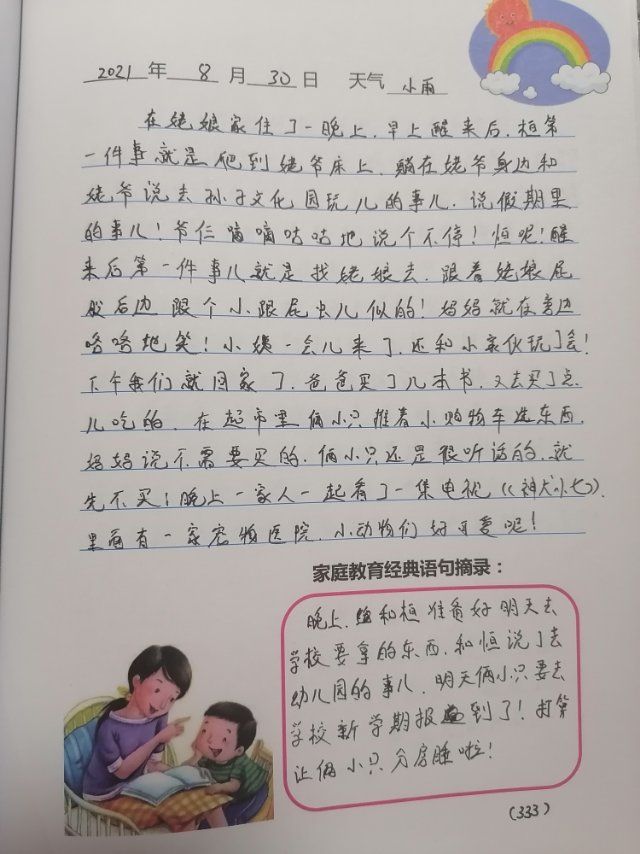 2021 年 8 月 30 日 天气 小雨
在姥娘家住了一晚上.早上醒来后.桓第
一件事就是爬到姥爷床上.躺在姥爷身边和
姥爷说去孙子文化园玩儿的事儿.说假期里
的事儿!爷仨嘀嘀咕咕地说个不停!恒呢!醒
来后第一件事儿就是找姥娘去.跟着姥娘屁
股后边跟个小跟屁虫儿似的!妈妈就在旁边
咯咯地笑!小姨一会儿来了.还和小家伙玩了会!
下午我们就回家了.爸爸买了几本书.又去买了点
儿吃的.在超市里俩小只推着小购物车选东西.
妈妈说不需要买的.俩小只还是很听话的.就
先不买!晚上一家人一起看了一集电视《神犬小七》.
里面有一家宠物医院.小动物们好可爱呢!
家庭教育经典语句摘录:
晚上.和桓准备好明天去
学校要拿的东西.和恒说了去
幼儿园的事儿.明天俩小只要去
学校新学期报到了!打算
让俩小只分房睡啦!
(333)